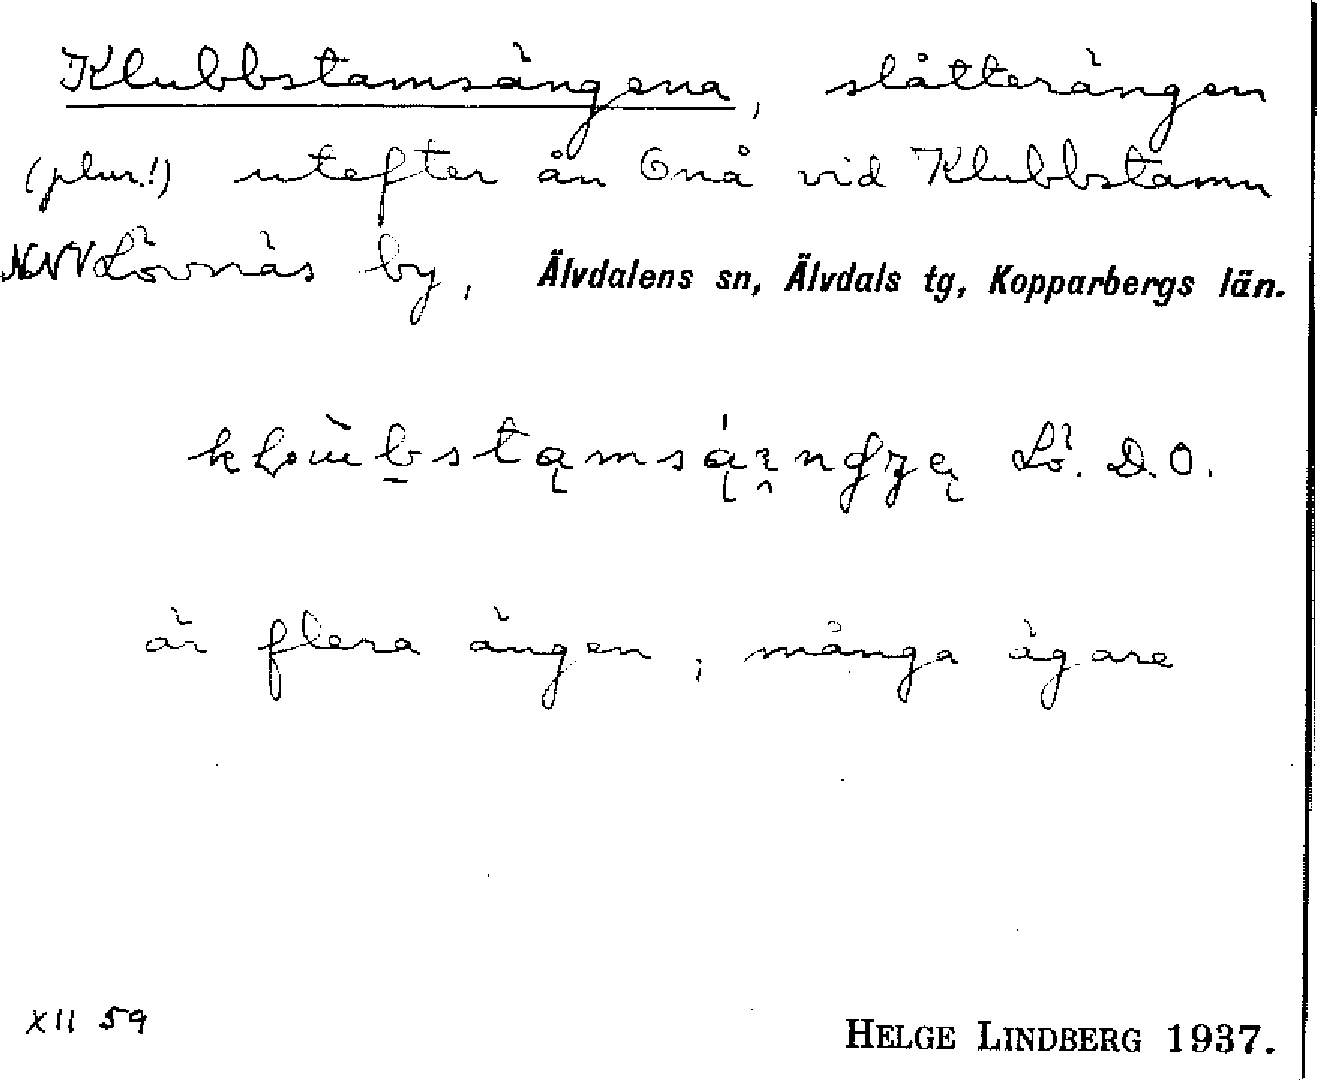 Klubbstamsängena, slåtterängen
(plur!) utefter ån Onå vid Klubbstamn
NNV Lövnäs by, Älvdalens sn, Älvdals tg, Kopparbergs län.
Lö. D.O.
är flera ängen, många ägare
XII 59
HELGE LINDBERG 1937.